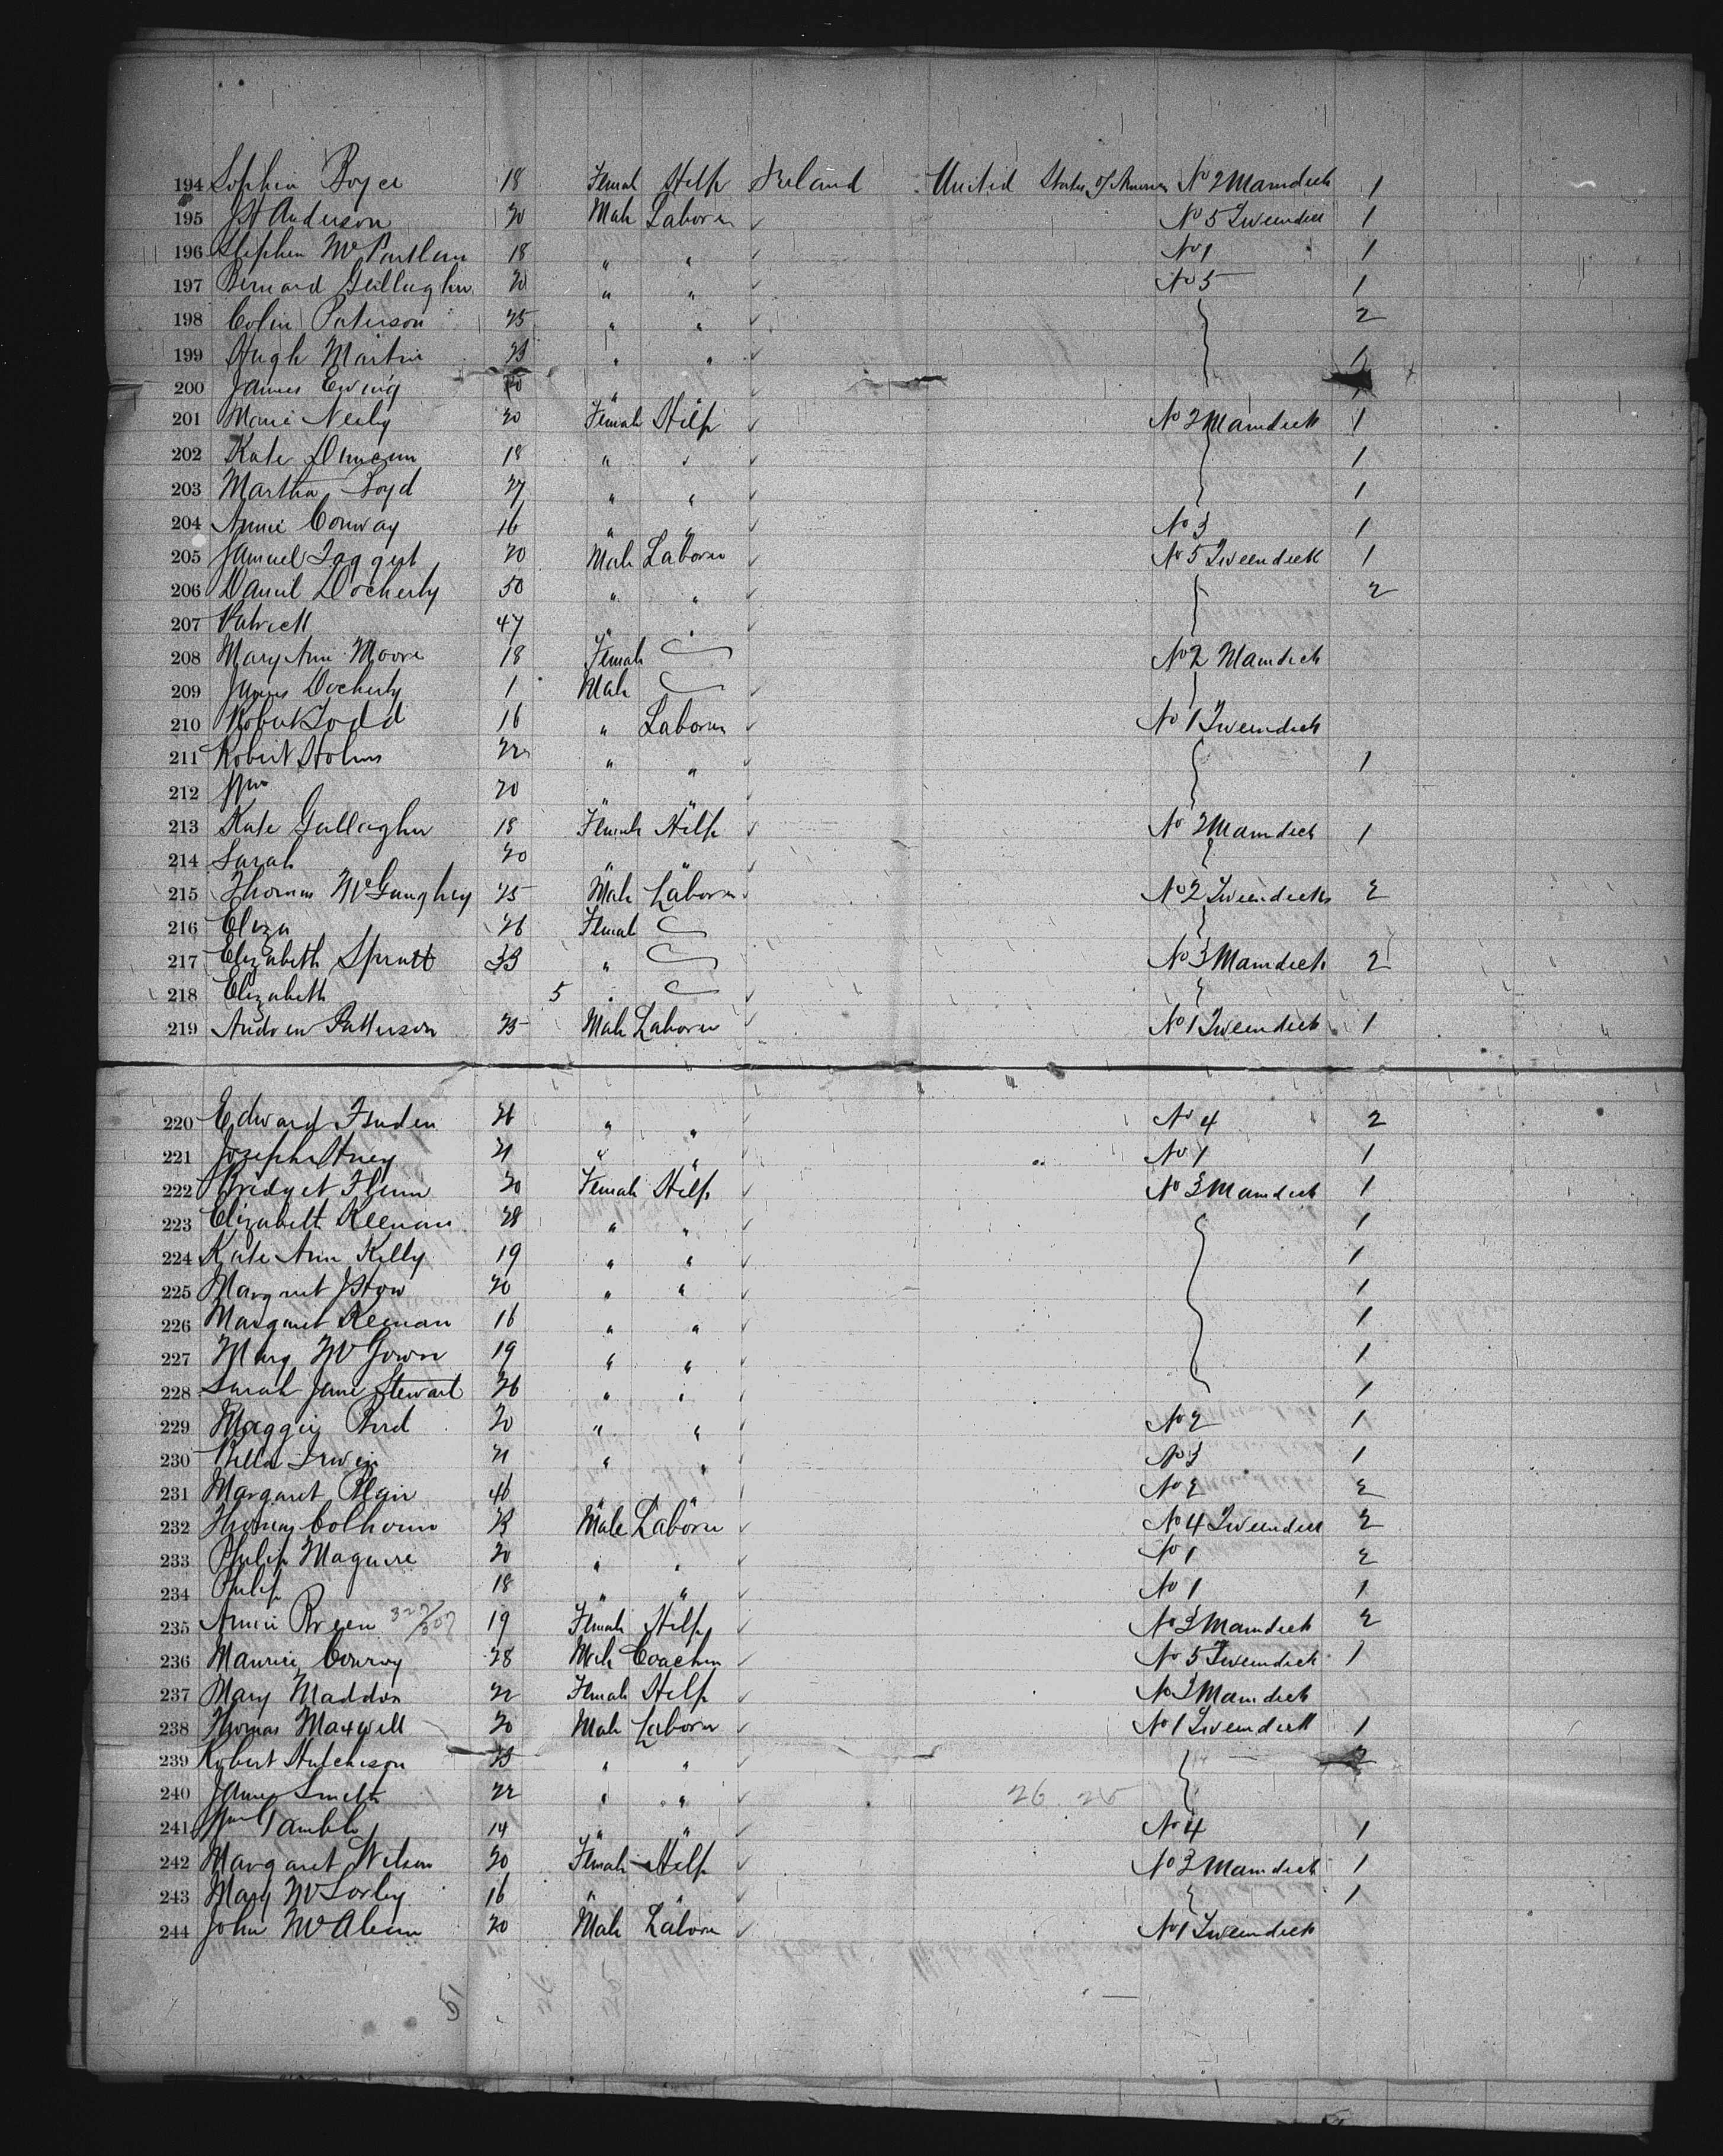 194 Sophia Boyce 18 Femal Help Ireland United States of America No 2 Maindeck 1
195 Jas Anderson 20 Male Laborer ✓ No 5 Tweendeck 1
196 Stephen McPartlan 18 " " ✓ No 1 1
197 Bernard Gallagher 20 " " ✓ No 5 1
198 Colin Paterson 25 " " ✓ 2
199 Hugh Martin 23 " " ✓
200 James Ewing 20 " " ✓
201 Neely 20 Female Help ✓ No 2 Maindeck 1
202 Kate Duncan 18 " " ✓ 1
203 Martha 27 " " ✓ 1
204 Annie Conway 16 " " ✓ No 3 1
205 Samuel Taggart 20 Male Laborer ✓ No 5 Tweendeck 1
206 Daniel Docherty 50 " " ✓ 2
207 Patrick 47 " " ✓
208 Mary Ann Moore 18 Female No 2 Maindeck
209 James Docherty 1 Male ✓
210 Robert Todd 16 " Laborer ✓ No 1 Tweendeck
211 Robert Holms 22 " " ✓ 1
212 Wm 20 " " ✓
213 Kate Gallagher 18 Female Help ✓ No 2 Maindeck 1
214 Sarah 20 " " ✓
215 Thomas McGaughey 25 Male Laborer ✓ No 2 Tweendecks 2
216 Eliza 26 Female
217 Elizabeth Spratt 33 " No 3 Maindeck 2
218 Elizabeth 5 " ✓
219 Andrew Patterson Male Laborer ✓ No 1 Tweendeck 1
220 Edward 26 " " No 4 2
221 Joseph 21 " " No 1 1
222 Bridget 20 Female Help ✓ No 3 Maindeck 1
223 Elizabeth Keenan 28 " " ✓ 1
224 Kate Ann Kelly 19 " " ✓ 1
225 Margret 20 " " ✓ 1
226 Margaret Keenan 16 " " ✓ 1
227 Mary McGowan 19 " " ✓ 1
228 Sarah Jane Stewart 26 " " ✓ 1
229 Maggie 20 " " ✓ No 2 1
230 Bella Irwin 21 " " No 3 1
231 Margaret Blair 46 " " No 2 2
232 Thomas Colhoun 23 Male Laborer ✓ No 4 Tweendeck 2
233 Philip Maguire 20 " " ✓ No 1 2
234 Philip 18 " " ✓ No 1 1
235 Annie Breen 19 Female Help ✓ No 3 Maindeck 2
236 Maurice Conroy 28 Male Coachm ✓ No 5 Tweendeck 1
237 Mary Madden 22 Female Help ✓ No 3 Maindeck
238 Thomas Maxwell 20 Male Laborer ✓ No 1 Tweendeck 1
239 Robert Hutchison " " ✓ 2
240 James Smith 22 " " ✓ 26 26
241 Wm Gamble 14 " " ✓ No 4 1
242 Margaret Wilson 20 Female Help ✓ No 3 Maindeck 1
243 Mary McSorley 16 " " ✓ 1
244 John McAleer 20 Male Laborer ✓ No 1 Tweendeck
51